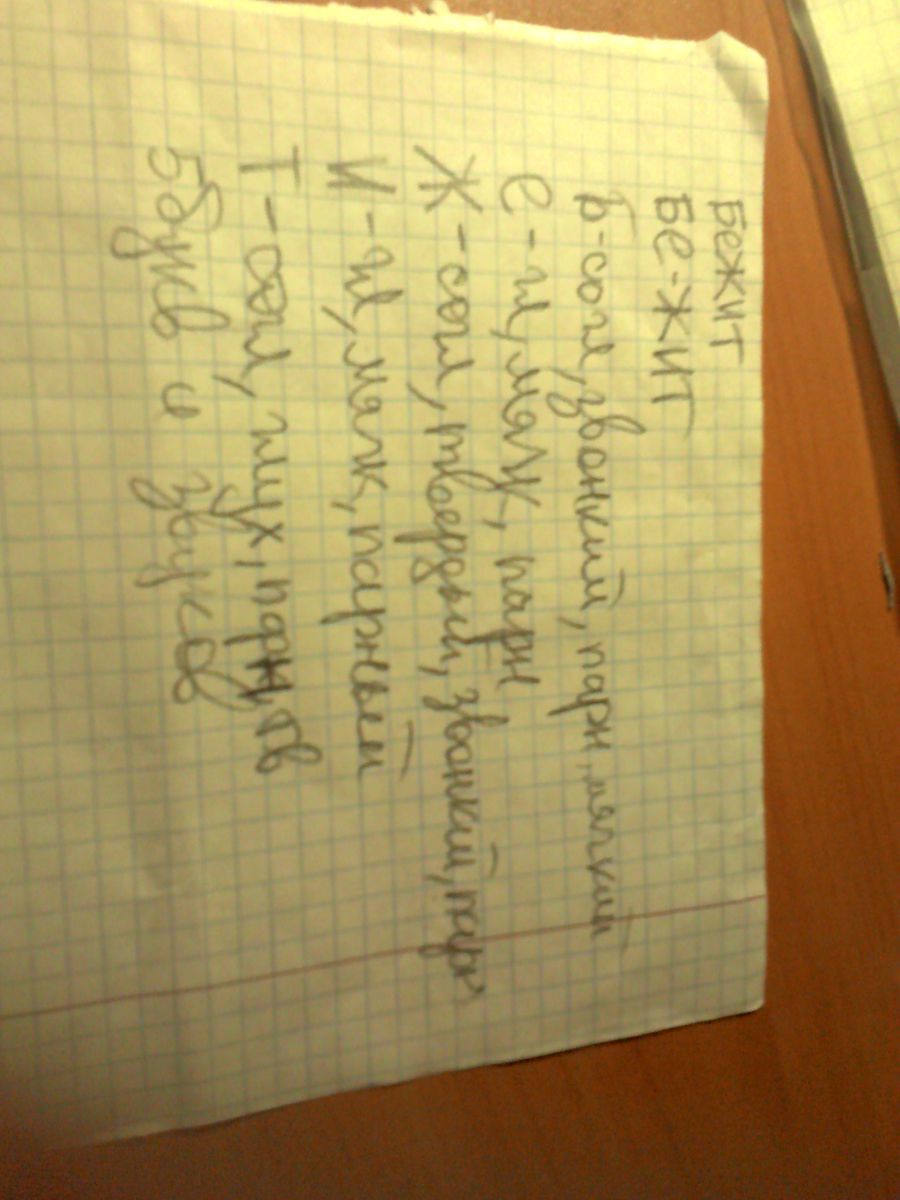 Бежит
БЕ-ЖИТ
Б-согл, звонкий, парн, мягкий
е-гл, мялк, парн
Ж-согл, твердый, звонкий, парн
И-гл, мялк, парный
Т-согл, глух, парн, тв
5букв и звуков